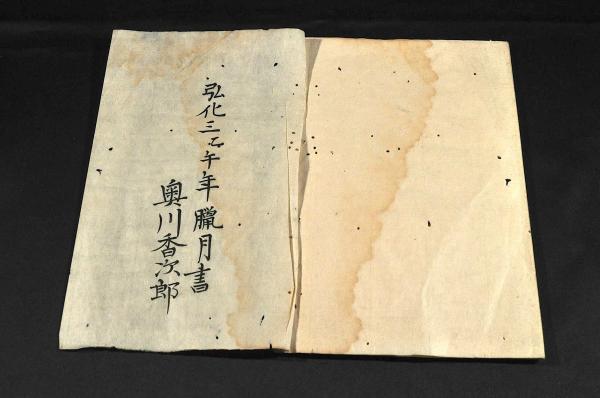 弘化三丙午年臘月書
奥川香次郎